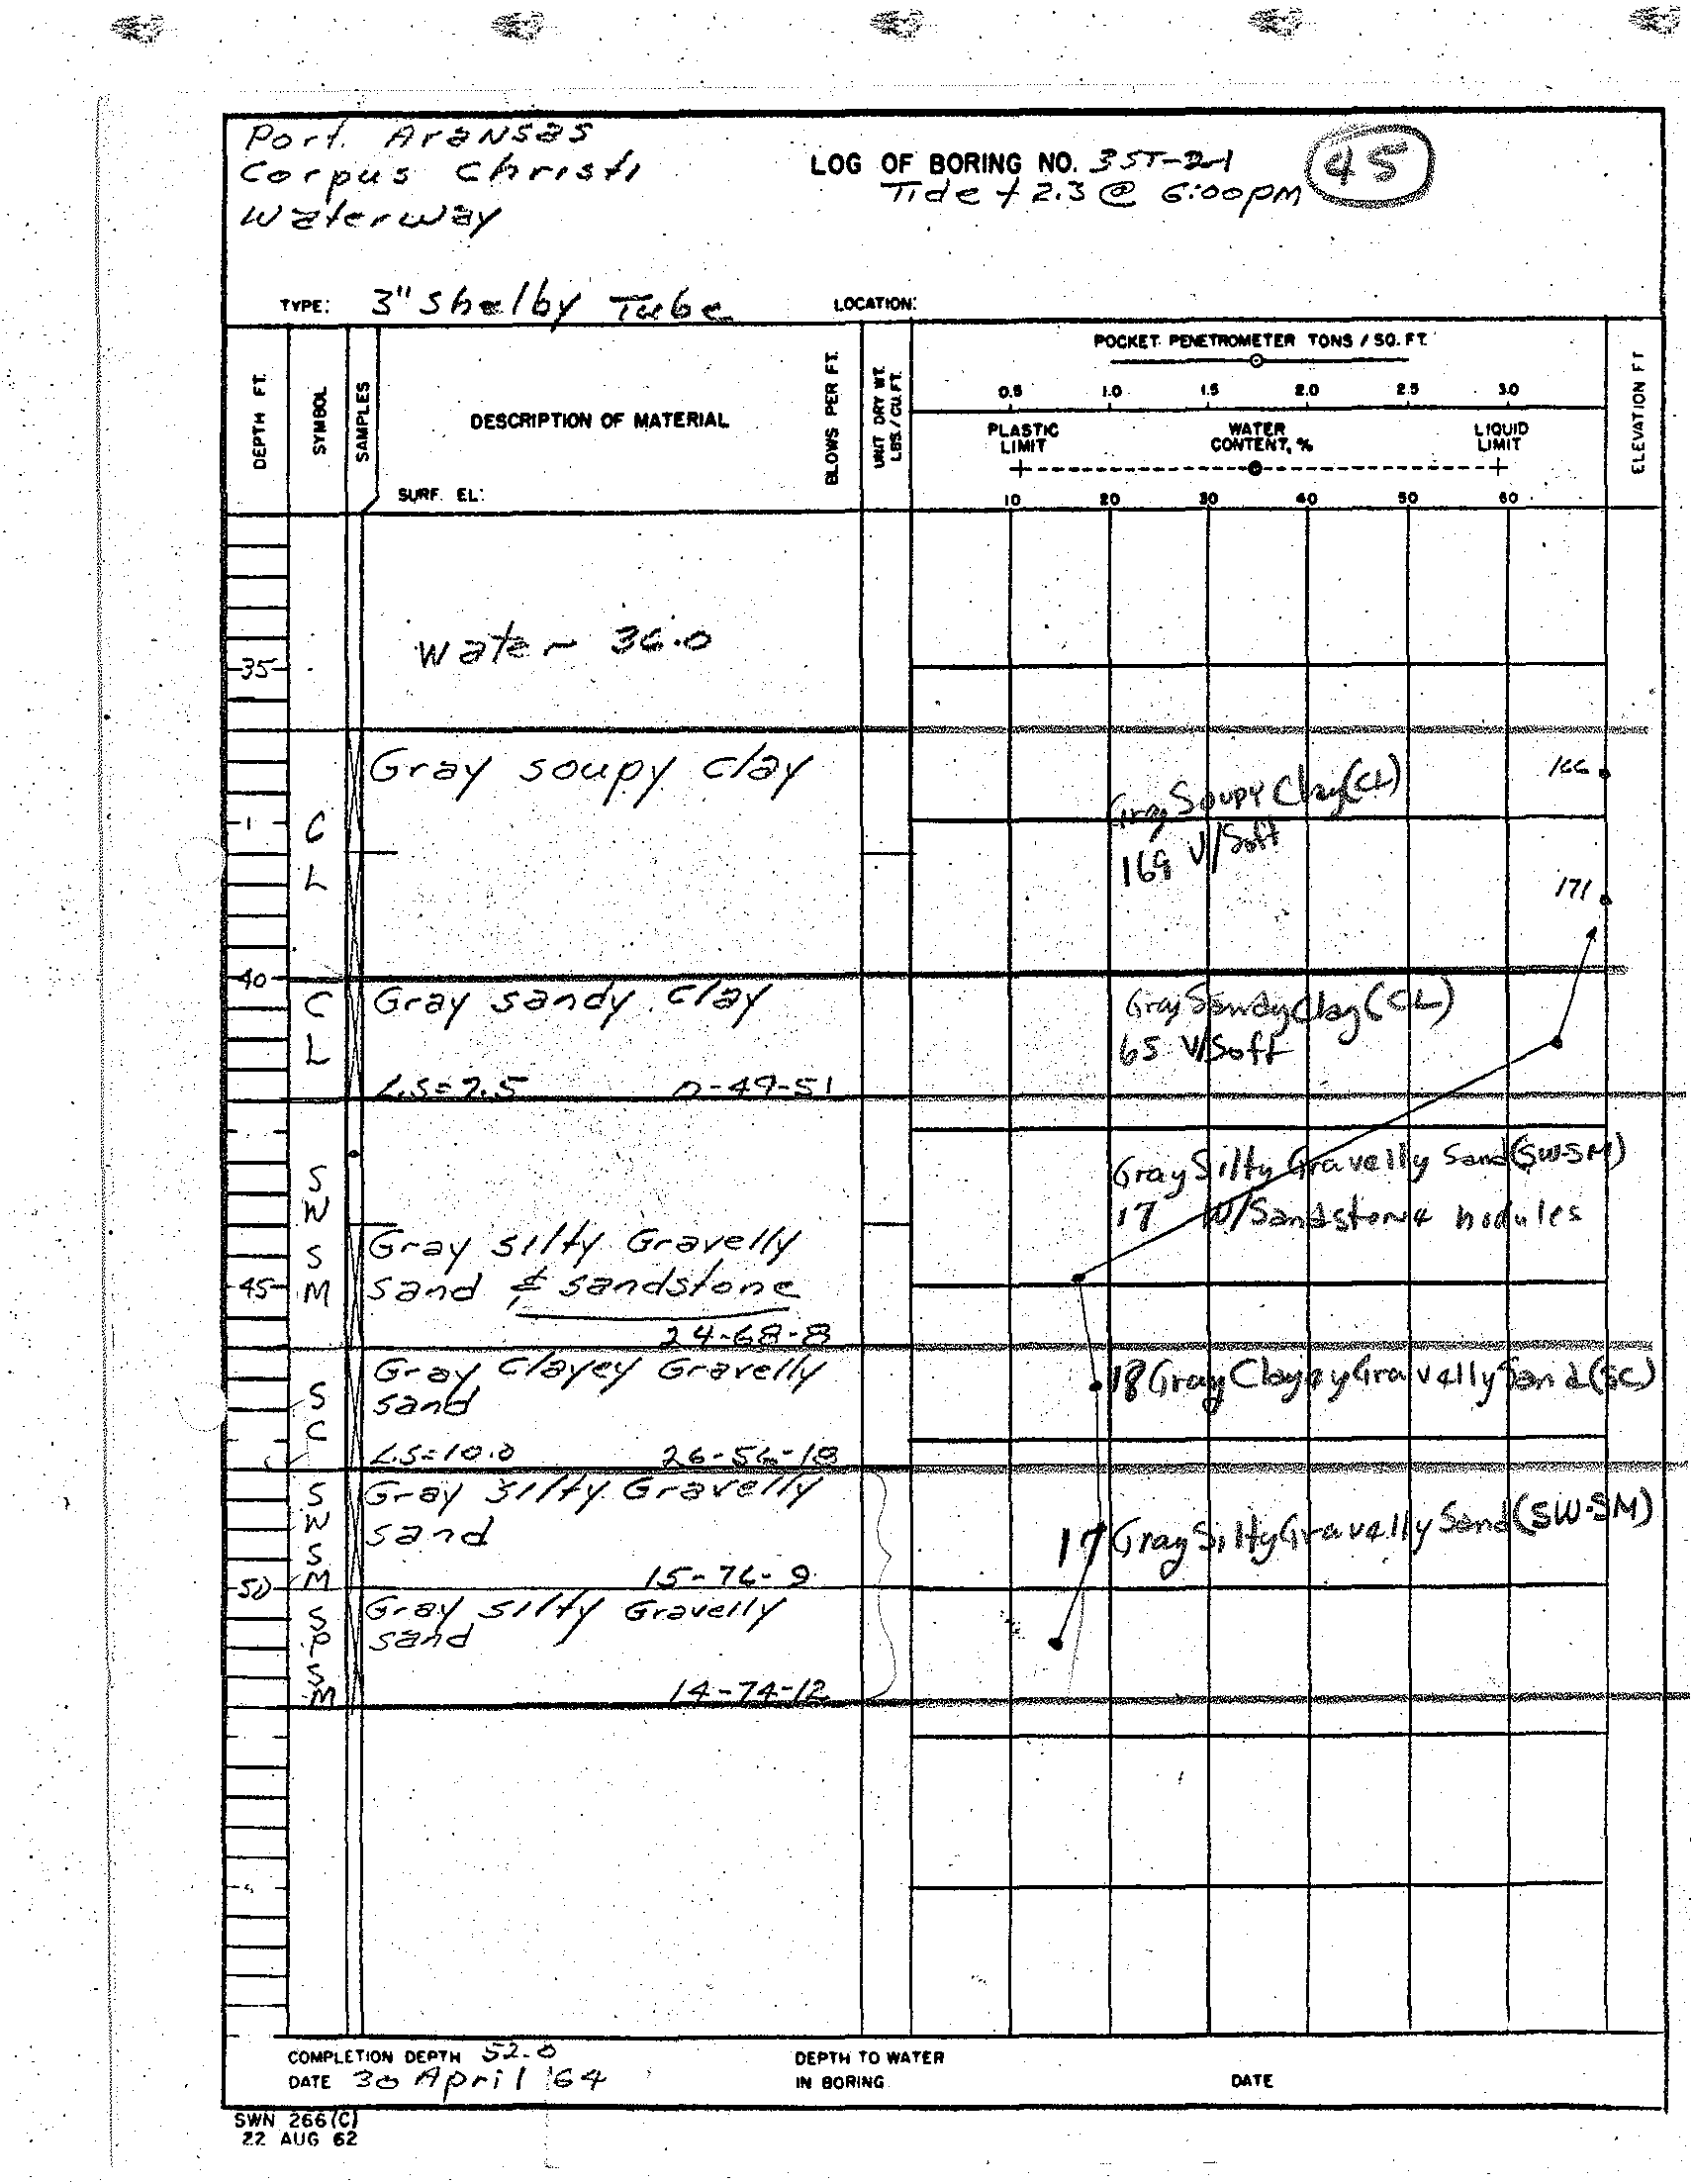 Port. Aransas
Corpus Christi
Waterway
LOG OF BORING NO. 3ST-2-1
45
Tide + 2.3 @ 6:00pm
TYPE: 3" Shelby Tube
LOCATION:
DEPTH FT.
SYMBOL
SAMPLES
DESCRIPTION OF MATERIAL
SURF. EL:
BLOWS PER FT.
UNIT DRY WT. LBS./CU.FT.
POCKET PENETROMETER TONS / SQ. FT.
0.5 1.0 1.5 2.0 2.5 3.0
PLASTIC LIMIT
WATER CONTENT, %
LIQUID LIMIT
10 20 30 40 50 60
ELEVATION FT
Water 36.0
35
Gray soupy clay
166
Gray Soupy Clay (CL)
169 V/Soft
C
L
171
40
C
L
Gray sandy clay
Gray Sandy Clay (CL)
65 V/Soft
L.S=7.5 0-49-51
S
W
S
M
Gray Silty Gravelly Sand (SW-SM)
17 W/Sandstone nodules
Gray silty Gravelly
45
sand & sandstone
24-68-8
Gray Clayey Gravelly
sand
18 Gray Clayey Gravelly Sand (SC)
S
C
L.S=10.0 26-56-18
S
W
S
M
Gray silty Gravelly
sand
17 Gray Silty Gravelly Sand (SW-SM)
15-76-9
50
S
P
S
M
Gray silty Gravelly
sand
14-74-12
COMPLETION DEPTH 52.0
DATE 30 April '64
DEPTH TO WATER
IN BORING
DATE
SWN 266(C)
22 AUG 62